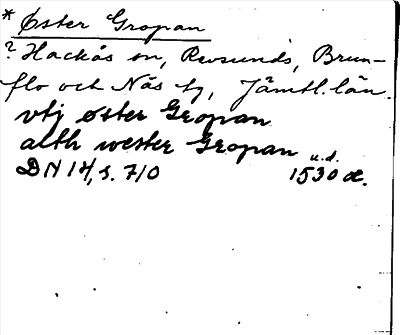 * Öster Gropan
? Hackås sn, Revsunds, Brun-
flo och Näs tg, Jämtl. län.
vtj øster Gropan
alth wester Gropan u.d.
DN 14, s. 710 1530